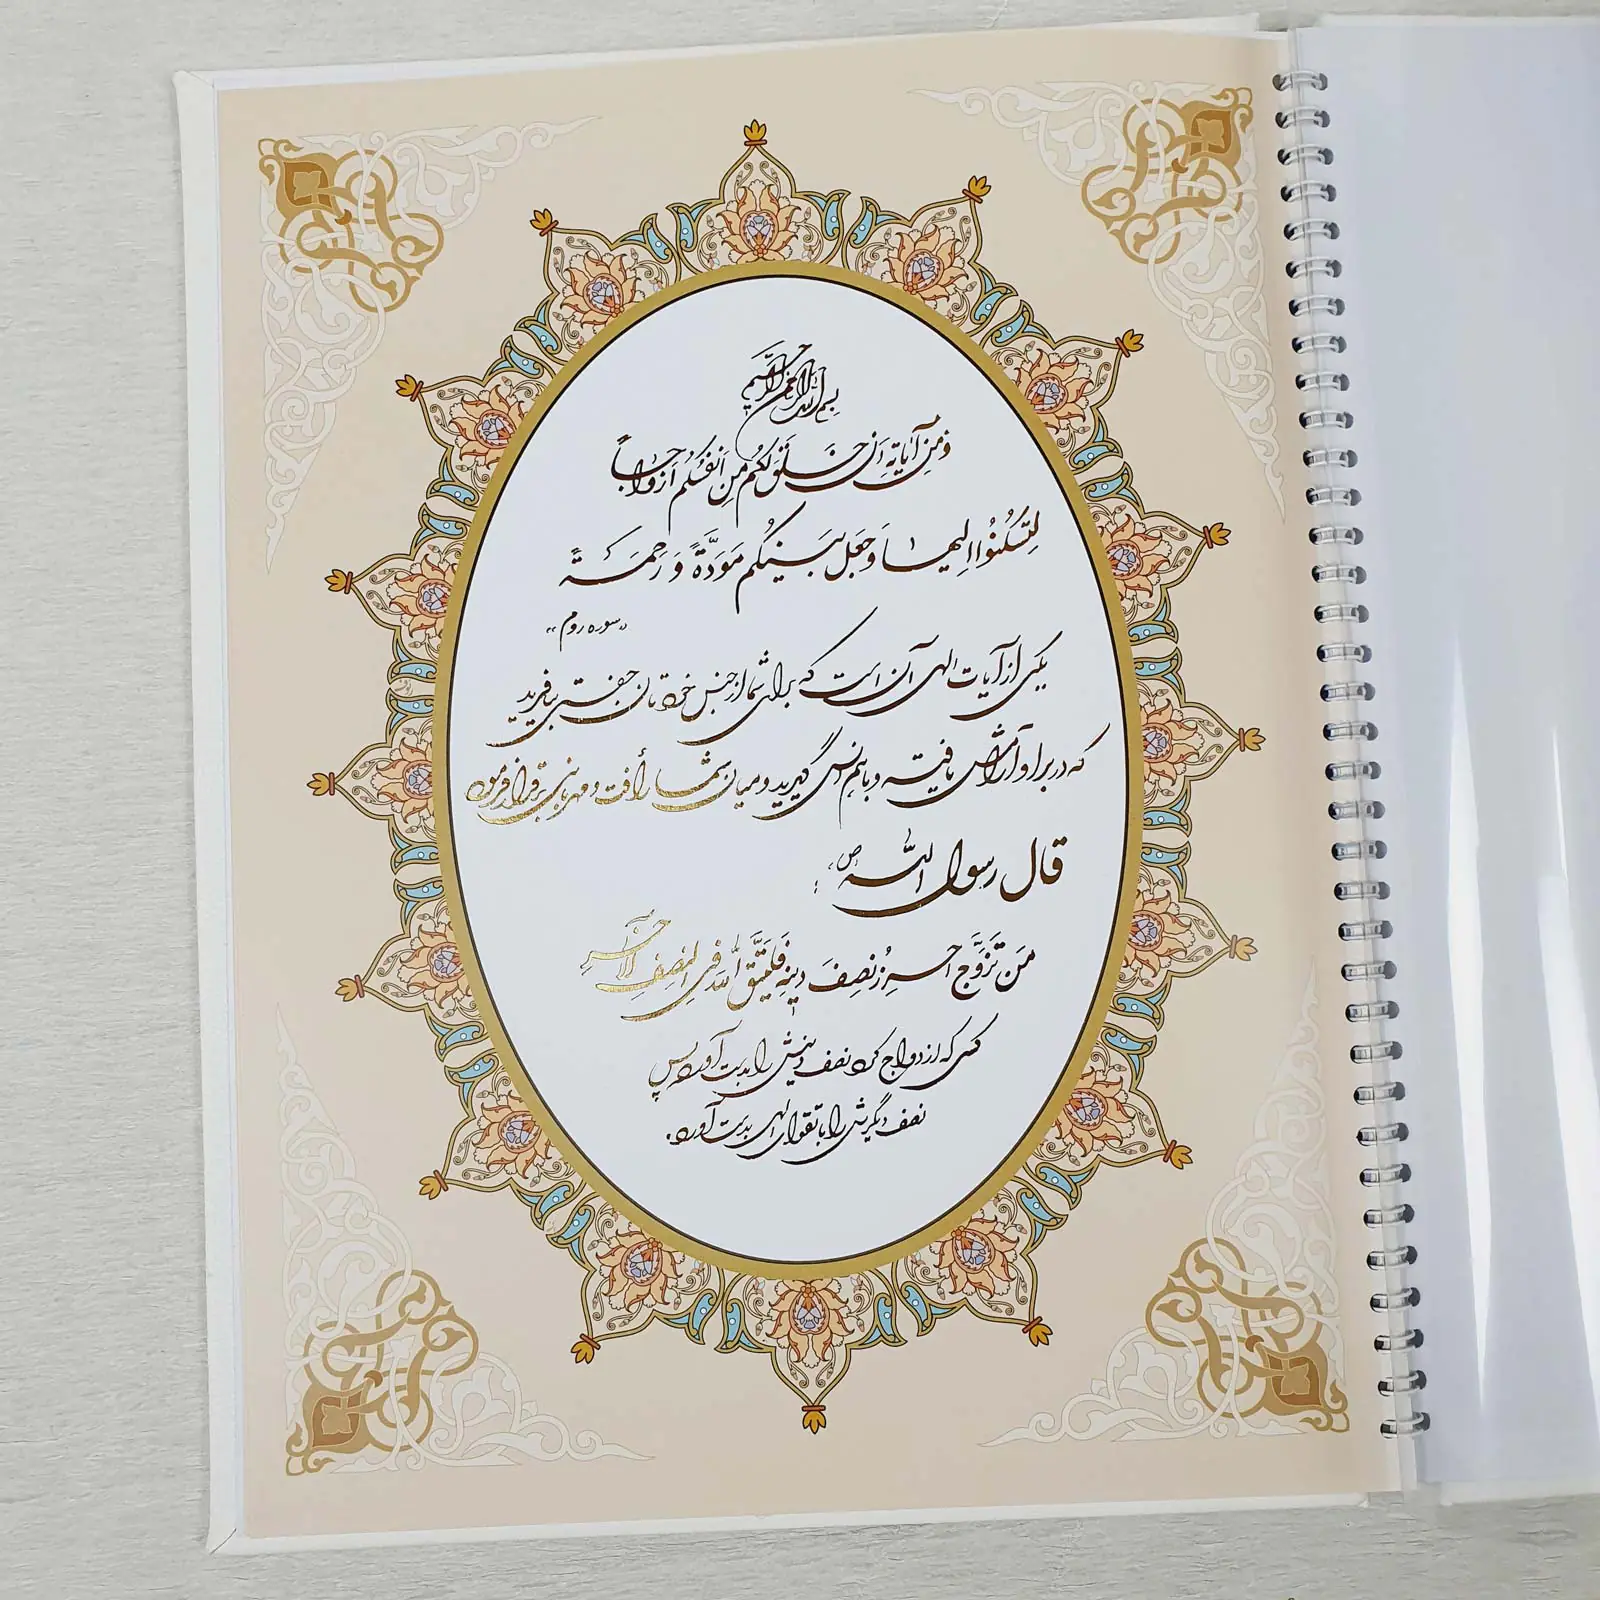 بسم الله الرحمن الرحیم
وَمِن آیاتِهِ اَن خَلَقَ لَکُم مِن اَنفُسِکُم اَزواجاً
لِتَسکُنُوا اِلیها وَجَعَل بَینَکُم مَوَدَّةً وَ رَحمَةً
«سوره روم»
یکی از آیات الهی آن است که برای شما از جنس خودتان جفتی بیافرید
که در بر او آرامش یافته و با هم انس گیرید و میان شما رأفت و مهربانی برقرار فرمود
قال رسول الله ص :
مَن تَزَوَّج احرز نِصفَ دینِهِ فَلیَتَّقِ اللهَ فِی النِصفِ الآخَرِ
کسی که ازدواج کرد نصف دینش را بدست آورد پس
نصف دیگرش را با تقوای الهی بدست آورد.